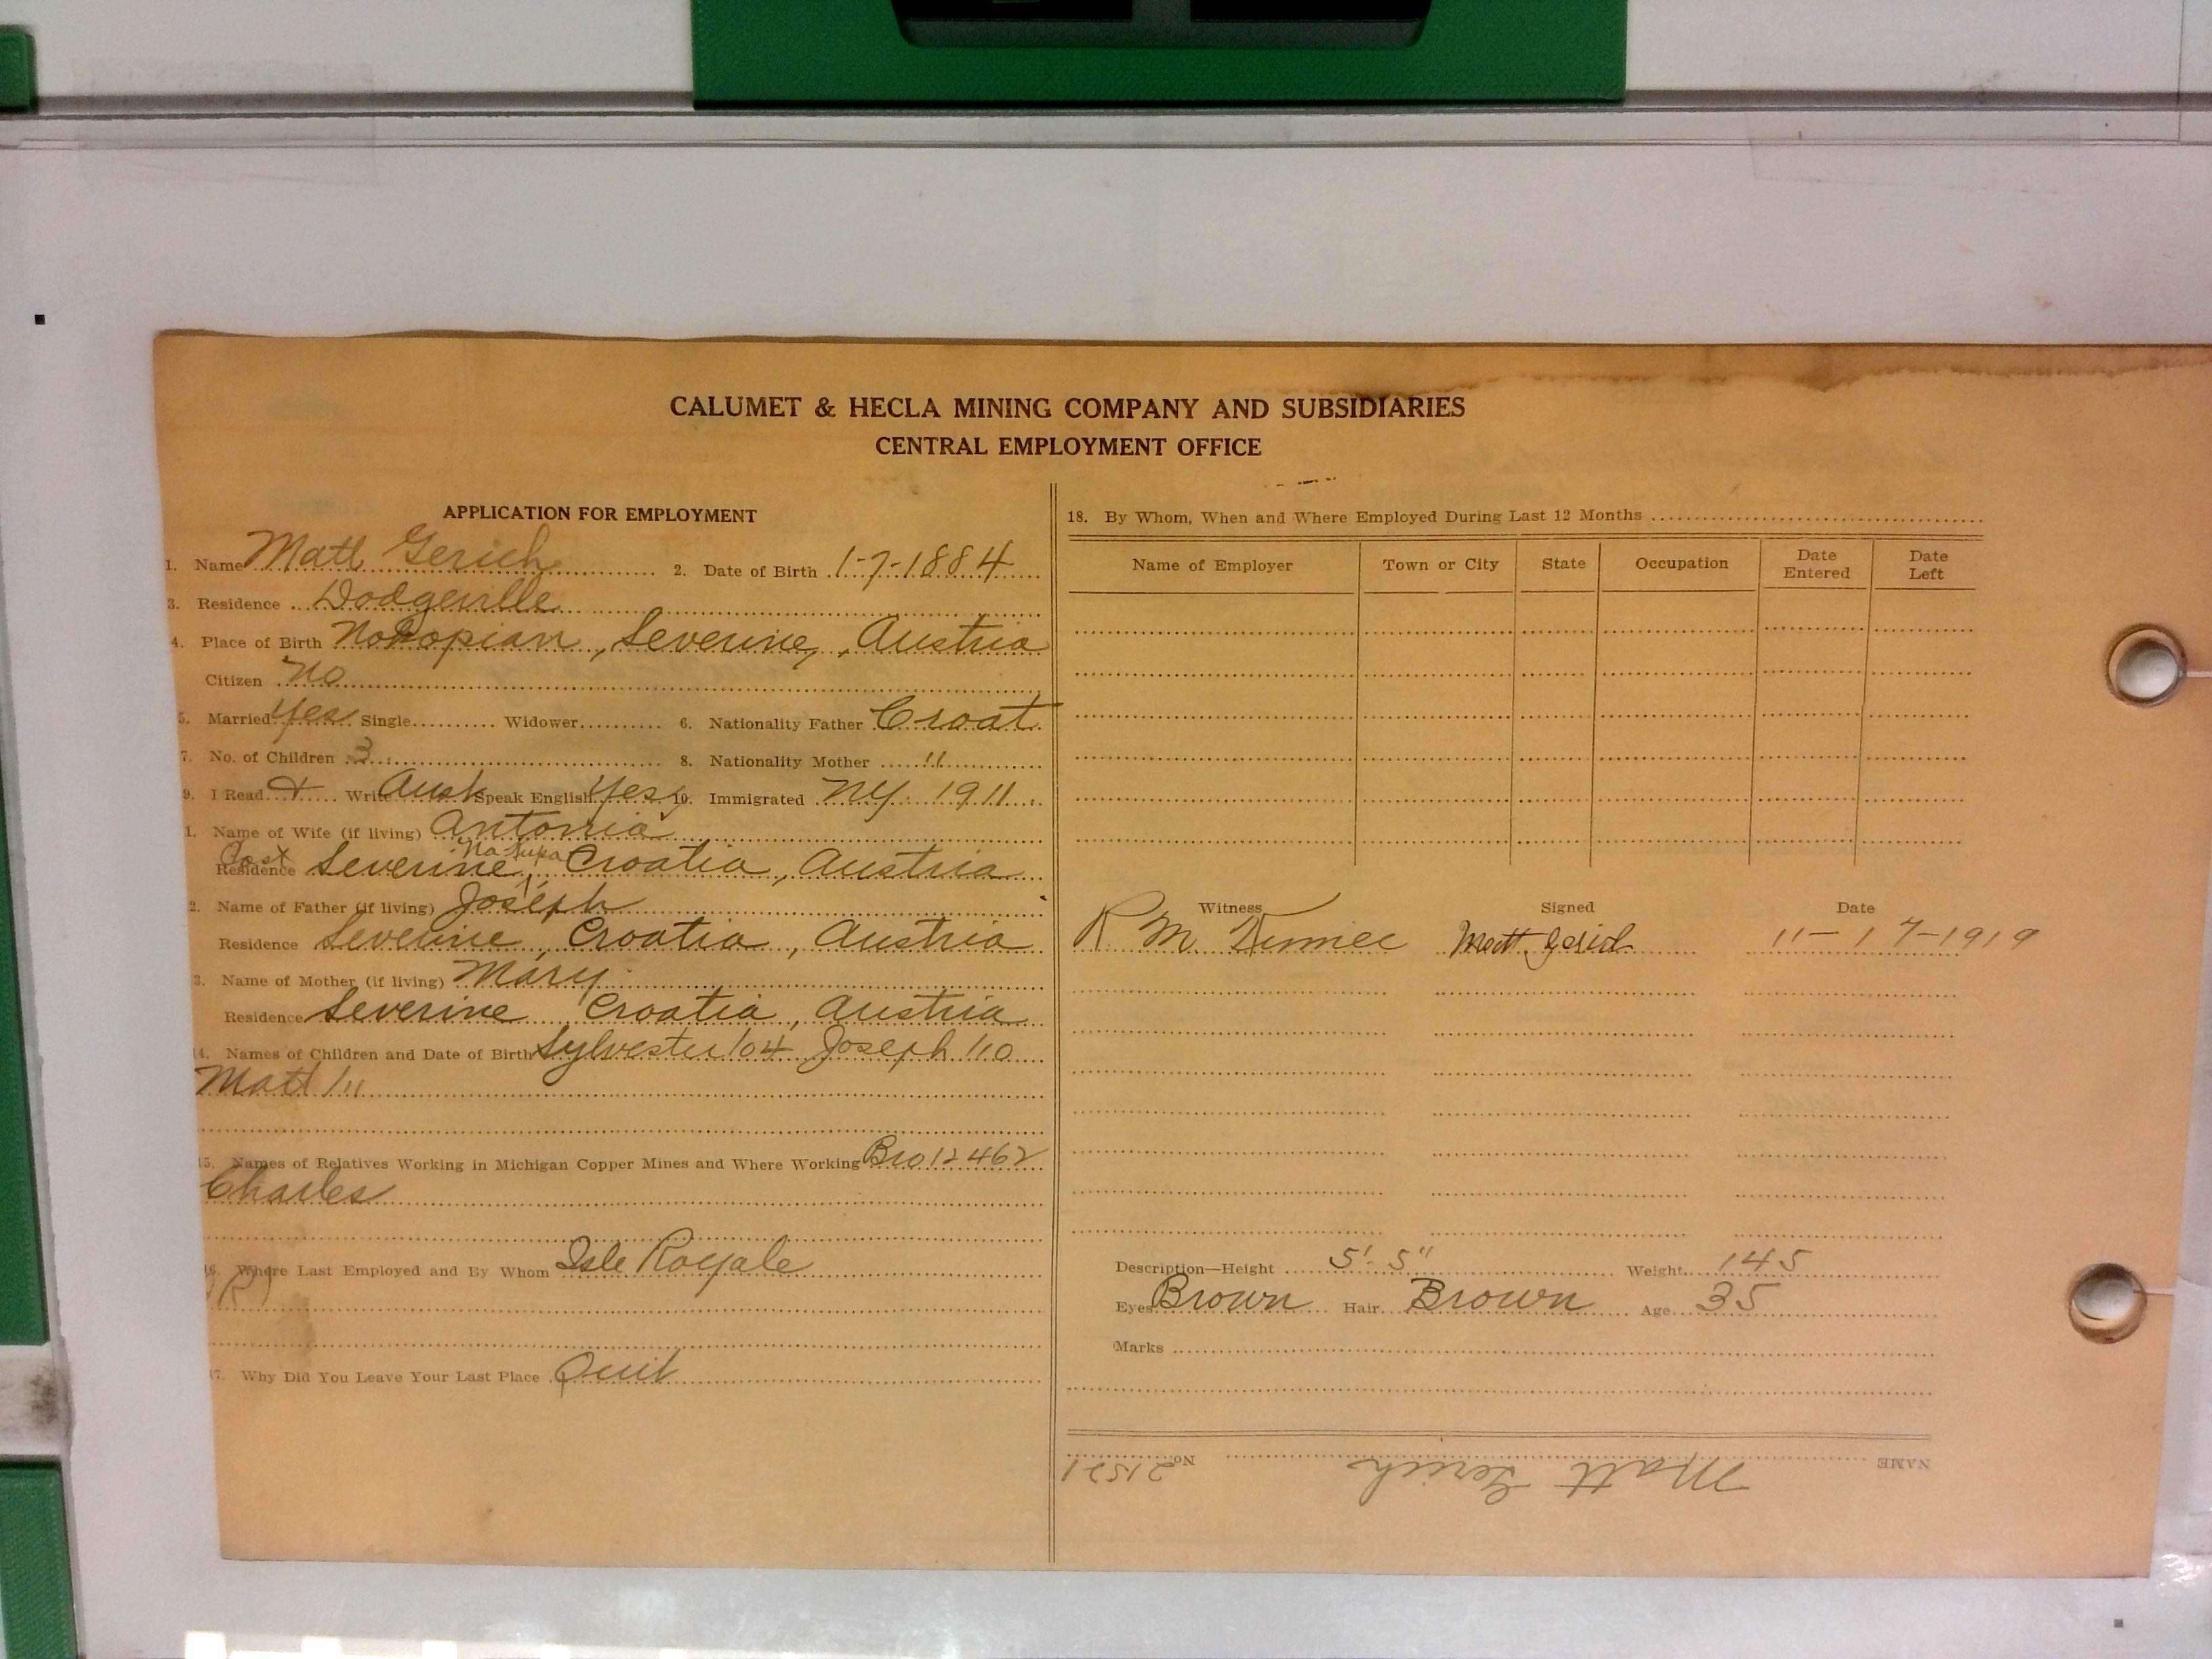 CALUMET & HECLA MINING COMPANY AND SUBSIDIARIES
CENTRAL EMPLOYMENT OFFICE
APPLICATION FOR EMPLOYMENT
1. Name Matt Gerich 2. Date of Birth 1-7-1884
3. Residence Dodgeville
4. Place of Birth Severine, Austria
Citizen No
5. Married Yes Single Widower 6. Nationality Father Croat
7. No. of Children 3 8. Nationality Mother "
9. I Read + Write Aust Speak English Yes 10. Immigrated NY 1911
1. Name of Wife (if living) Antonia
Post Na Kupa
Residence Severine, Croatia, Austria
2. Name of Father (if living) Joseph
Residence Severine, Croatia, Austria
3. Name of Mother (if living) Mary
Residence Severine Croatia, Austria
14. Names of Children and Date of Birth Sylvester/04 Joseph/10
Matt/11
15. Names of Relatives Working in Michigan Copper Mines and Where Working Bro 12462
Charles
16. Where Last Employed and By Whom Isle Royale
17. Why Did You Leave Your Last Place Quit
18. By Whom, When and Where Employed During Last 12 Months
Name of Employer Town or City State Occupation Date Entered Date Left
Witness Signed Date
R M Matt Gerich 11-17-1919
Description—Height 5' 5" Weight 145
Eyes Brown Hair Brown Age 35
Marks
NAME Matt Gerich No. 21521